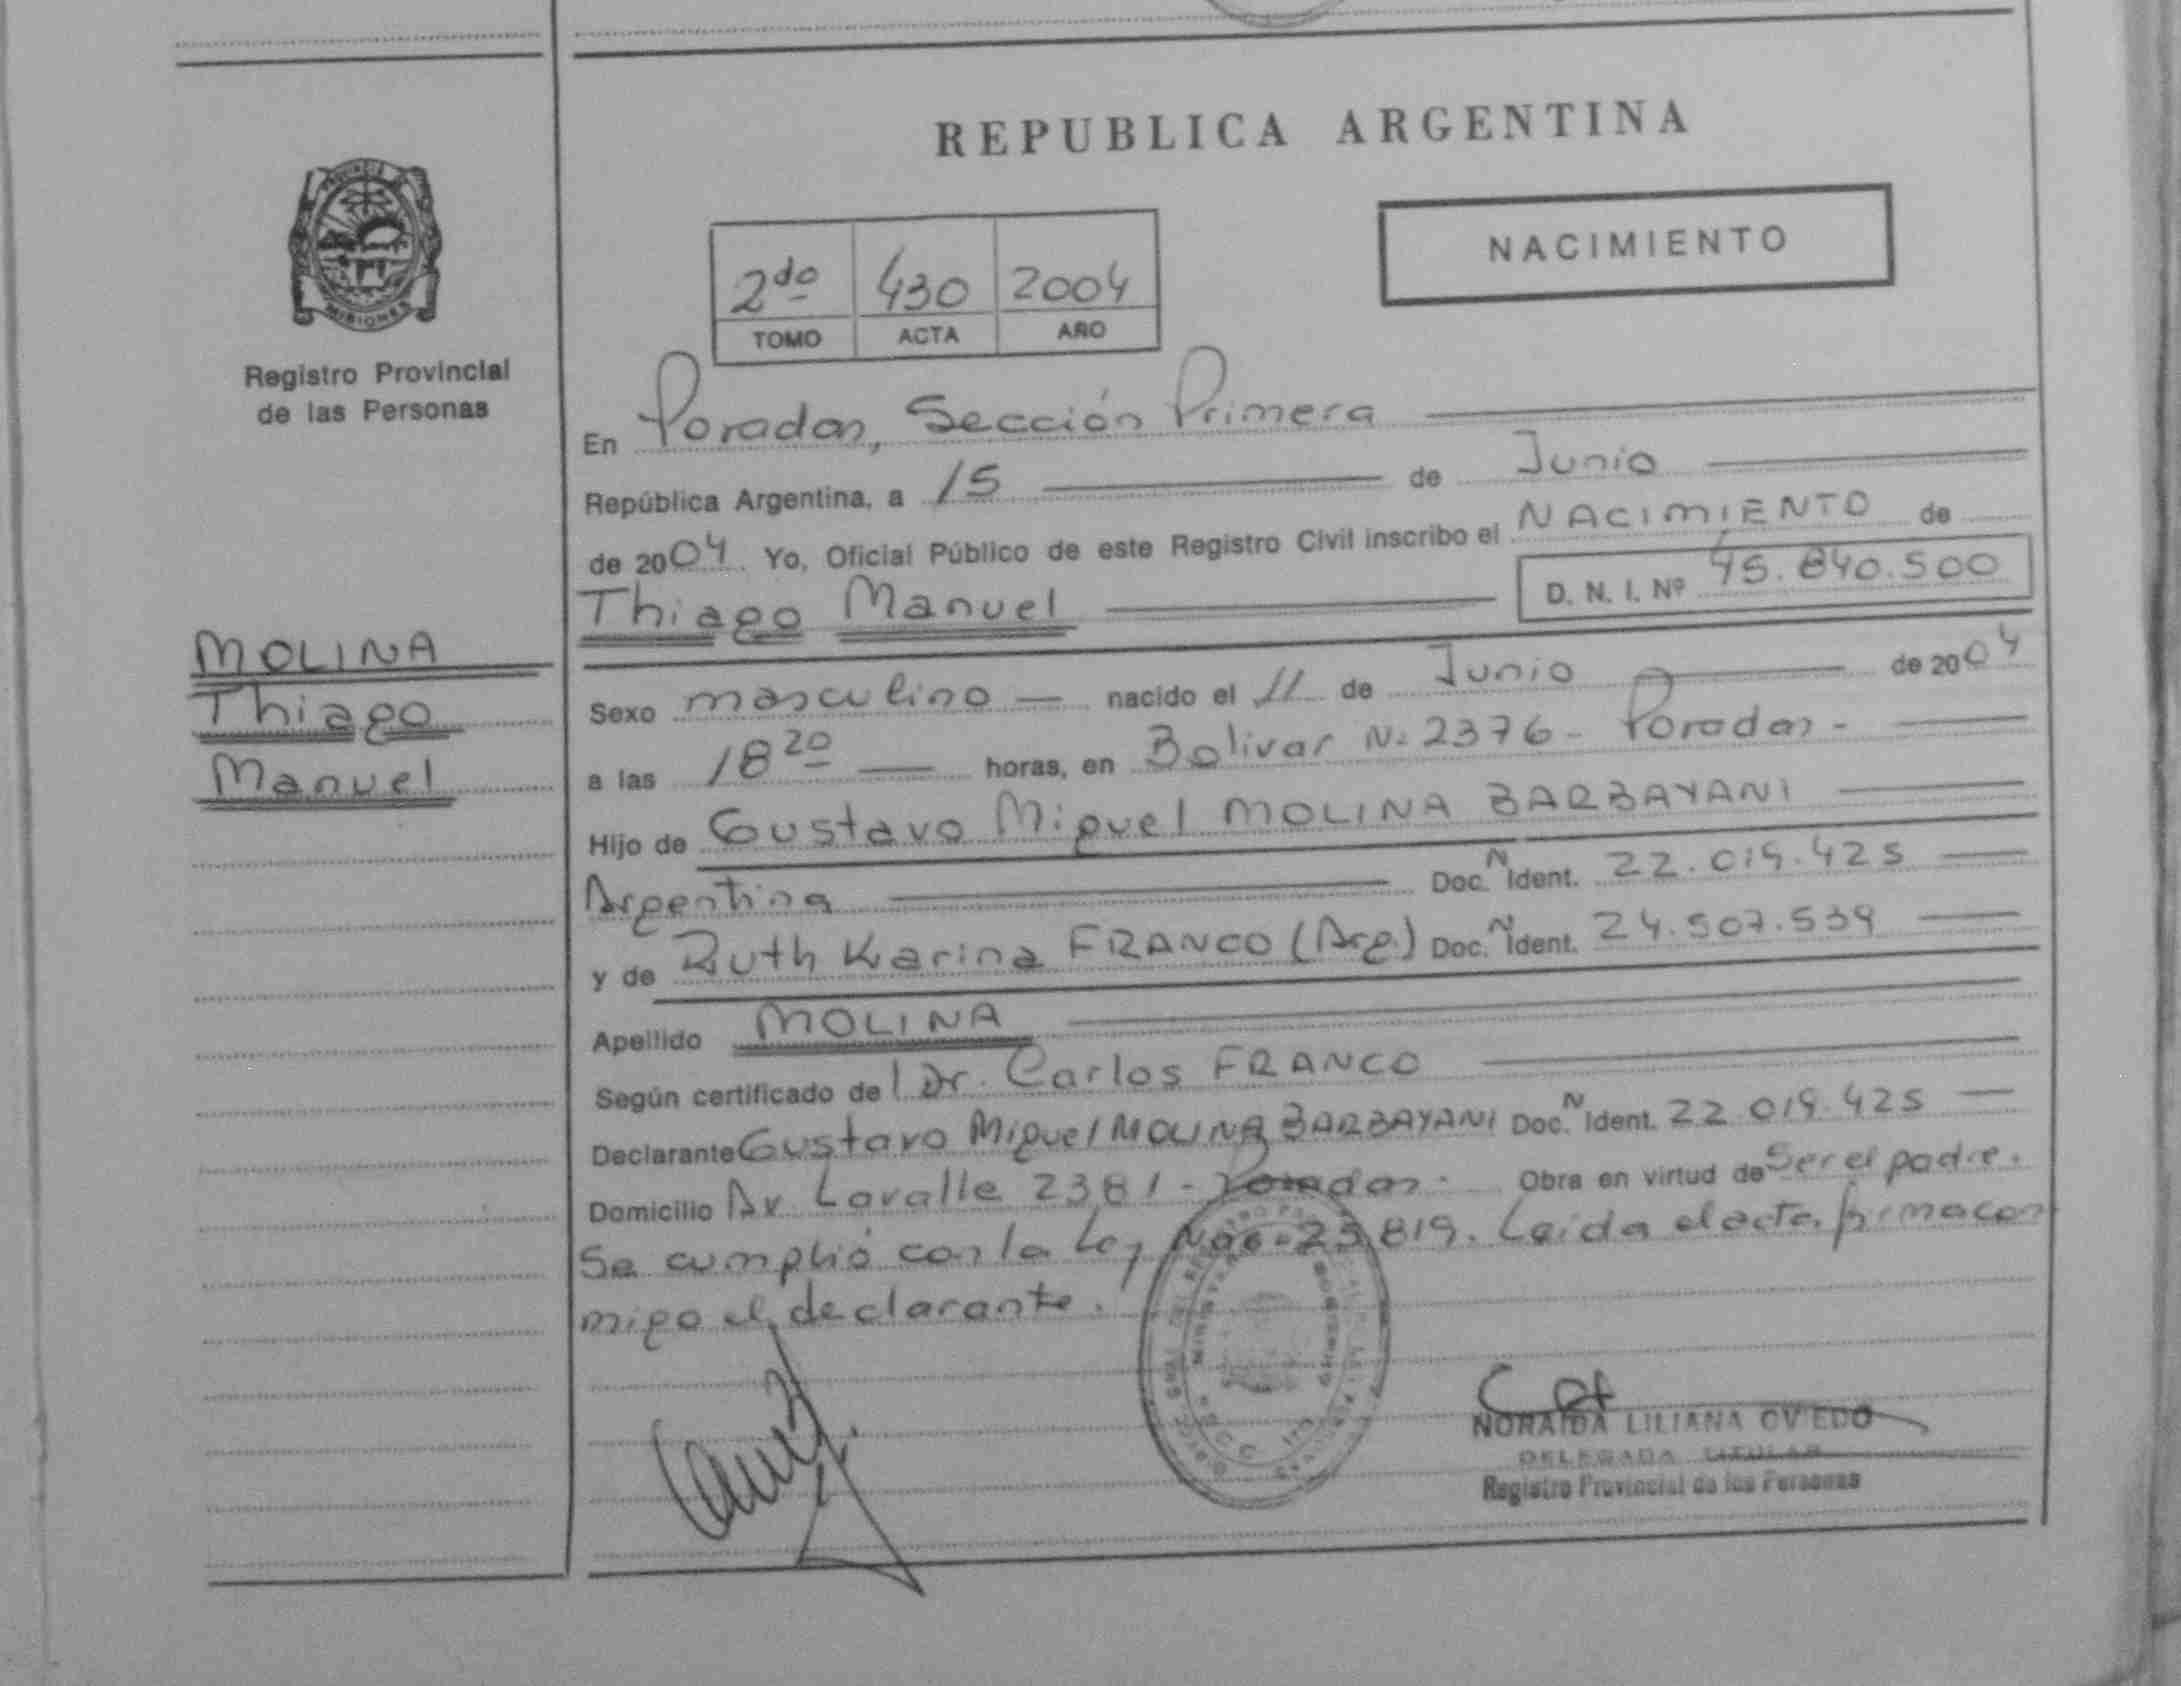 REPUBLICA ARGENTINA
NACIMIENTO
2do 430 2004
TOMO ACTA AÑO
MISIONES
Registro Provincial
de las Personas
MOLINA
Thiago
Manuel
En Posadas, Sección Primera
República Argentina, a 15 de Junio
de 2004. Yo, Oficial Público de este Registro Civil inscribo el NACIMIENTO de
Thiago Manuel D. N. I. Nº 45.840.500
Sexo masculino nacido el 11 de Junio de 2004
a las 18 20 horas, en Bolivar Nº 2376 - Posadas -
Hijo de Gustavo Miguel MOLINA BARBAYANI
Argentina Doc. N Ident. 22.019.425
y de Ruth Karina FRANCO (Arg.) Doc. N Ident. 24.507.539
Apellido MOLINA
Según certificado del Dr. Carlos FRANCO
Declarante Gustavo Miguel MOLINA BARBAYANI Doc. N Ident. 22.019.425
Domicilio Av. Lavalle 2381 - Posadas. Obra en virtud de Ser el padre.
Se cumplió con la Ley Nac. 25.819. Leída el acta firma con
migo el declarante.
NORAIDA LILIANA OVIEDO
DELEGADA TITULAR
Registro Provincial de las Personas